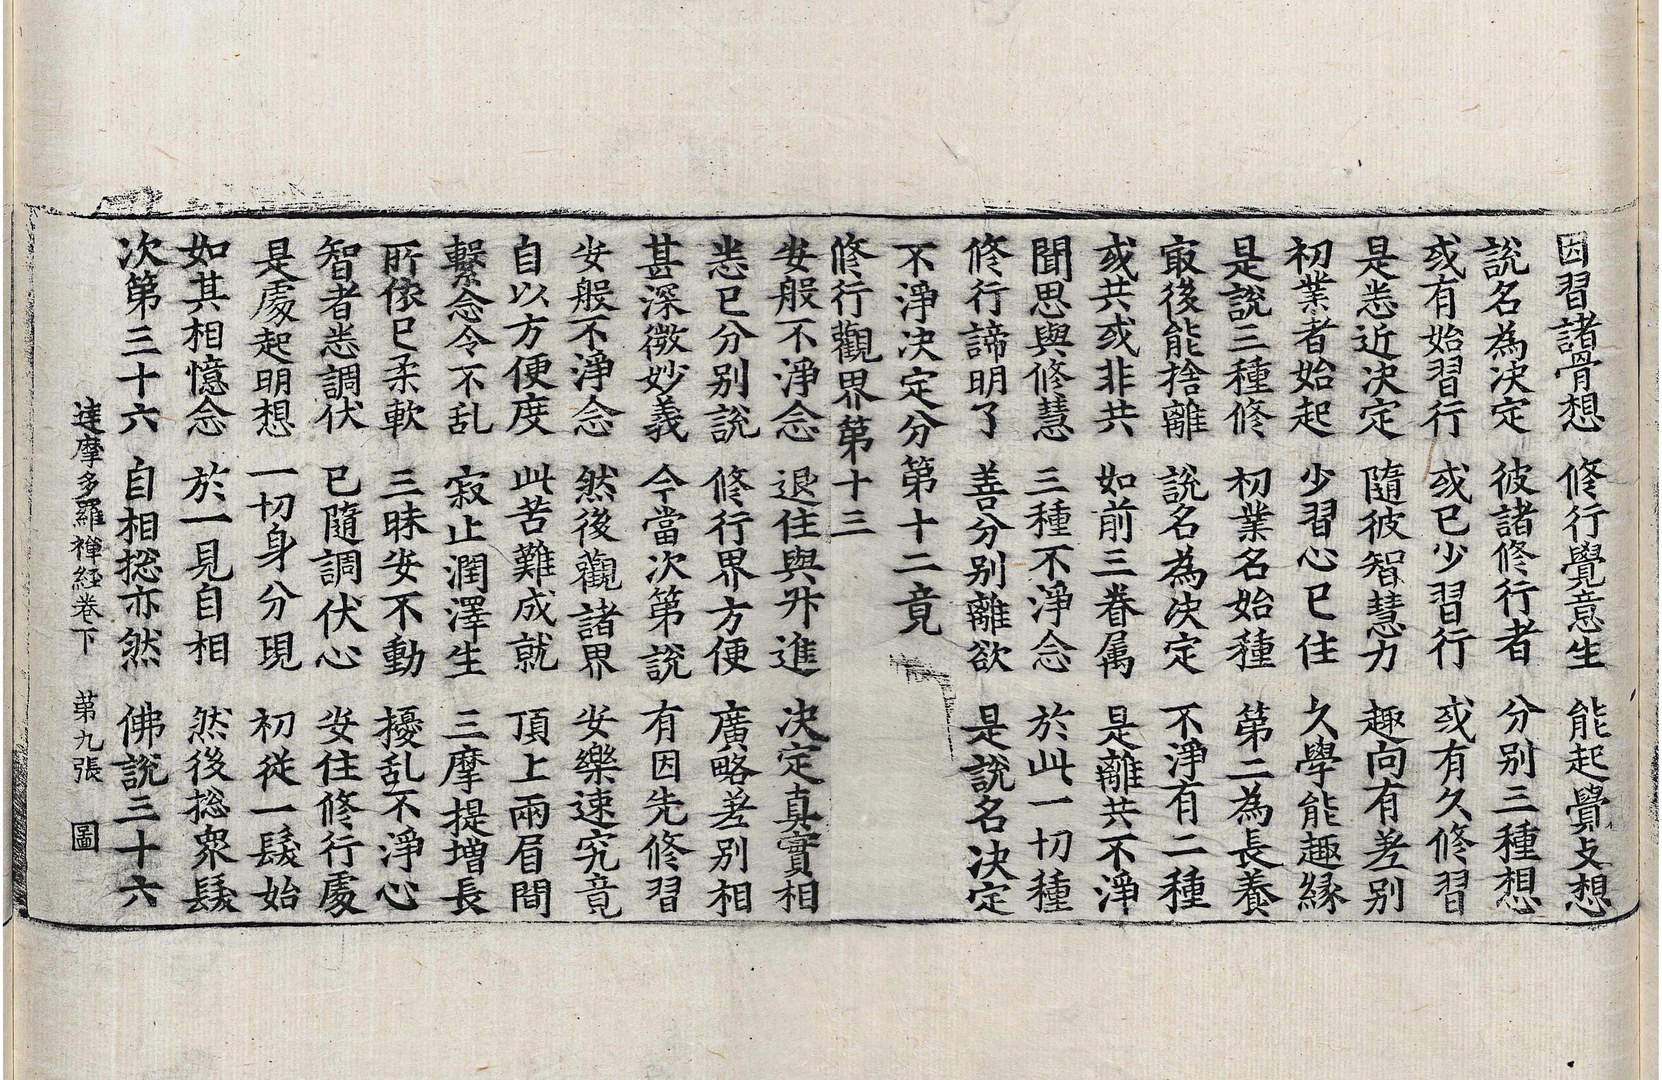 因習諸骨想　修行覺意生　能起覺支想
說名為決定　彼諸修行者　分別三種想
或有始習行　或已少習行　或有久修習
是悉近決定　隨彼智慧力　趣向有差別
初業者始起　少習心已住　久學能趣緣
是說三種修　初業名始種　第二為長養
㝡後能捨離　說名為決定　不淨有二種
或共或非共　如前三眷属　是離共不淨
聞思與修慧　三種不淨念　於此一切種
修行諦明了　善分別離欲　是說名決定
不淨決定分第十二竟
修行觀界第十三
安般不淨念　退住與升進　決定真實相
悉已分別說　修行界方便　廣略差別相
甚深微妙義　今當次第說　有因先修習
安般不淨念　然後觀諸界　安樂速究竟
自以方便度　此苦難成就　頂上兩眉間
繫念令不乱　寂止潤澤生　三摩提增長
所依已柔軟　三昧安不動　擾乱不淨心
智者悉調伏　已隨調伏心　安住修行處
是處起明想　一切身分現　初従一髮始
如其相憶念　於一見自相　然後揔衆髮
次第三十六　自相揔亦然　佛說三十六
達摩多羅禪経卷下　第九張　圖